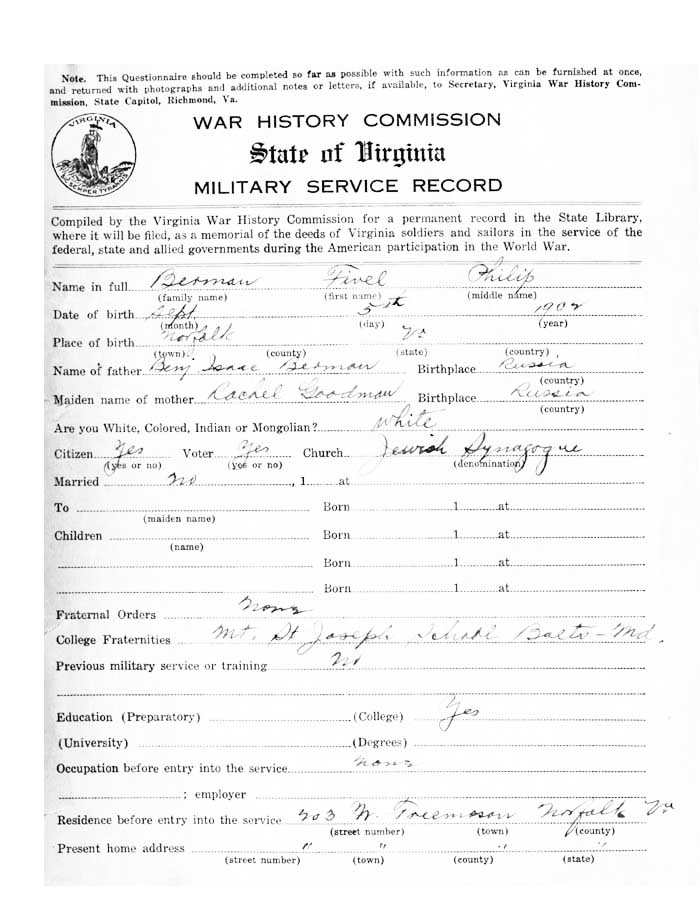 Note. This Questionnaire should be completed so far as possible with such information as can be furnished at once,
and returned with photographs and additional notes or letters, if available, to Secretary, Virginia War History Com-
mission, State Capitol, Richmond, Va.
VIRGINIA
SIC SEMPER TYRANNIS
WAR HISTORY COMMISSION
State of Virginia
MILITARY SERVICE RECORD
Compiled by the Virginia War History Commission for a permanent record in the State Library,
where it will be filed, as a memorial of the deeds of Virginia soldiers and sailors in the service of the
federal, state and allied governments during the American participation in the World War.
Name in full Berman Fivel Philip
(family name) (first name) (middle name)
Date of birth Sept. 5th 1902
(month) (day) (year)
Place of birth Norfolk Va
(town) (county) (state) (country)
Name of father Benj Isaac Berman Birthplace Russia
(country)
Maiden name of mother Rachel Goodman Birthplace Russia
(country)
Are you White, Colored, Indian or Mongolian? White
Citizen Yes Voter Yes Church Jewish Synagogue
(yes or no) (yes or no) (denomination)
Married no, 1 at
To Born 1 at
(maiden name)
Children Born 1 at
(name)
Born 1 at
Born 1 at
Fraternal Orders None
College Fraternities Mt. St Joseph School Balto - Md.
Previous military service or training no
Education (Preparatory) (College) Yes
(University) (Degrees)
Occupation before entry into the service none
; employer
Residence before entry into the service 703 W. Freemason Norfolk Va
(street number) (town) (county)
Present home address " " " "
(street number) (town) (county) (state)